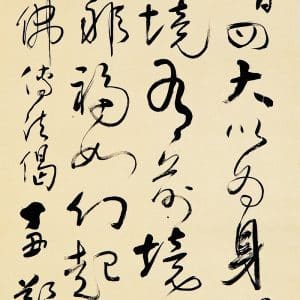 四大以為身
境有前境
罪福如幻起
佛傳法偈